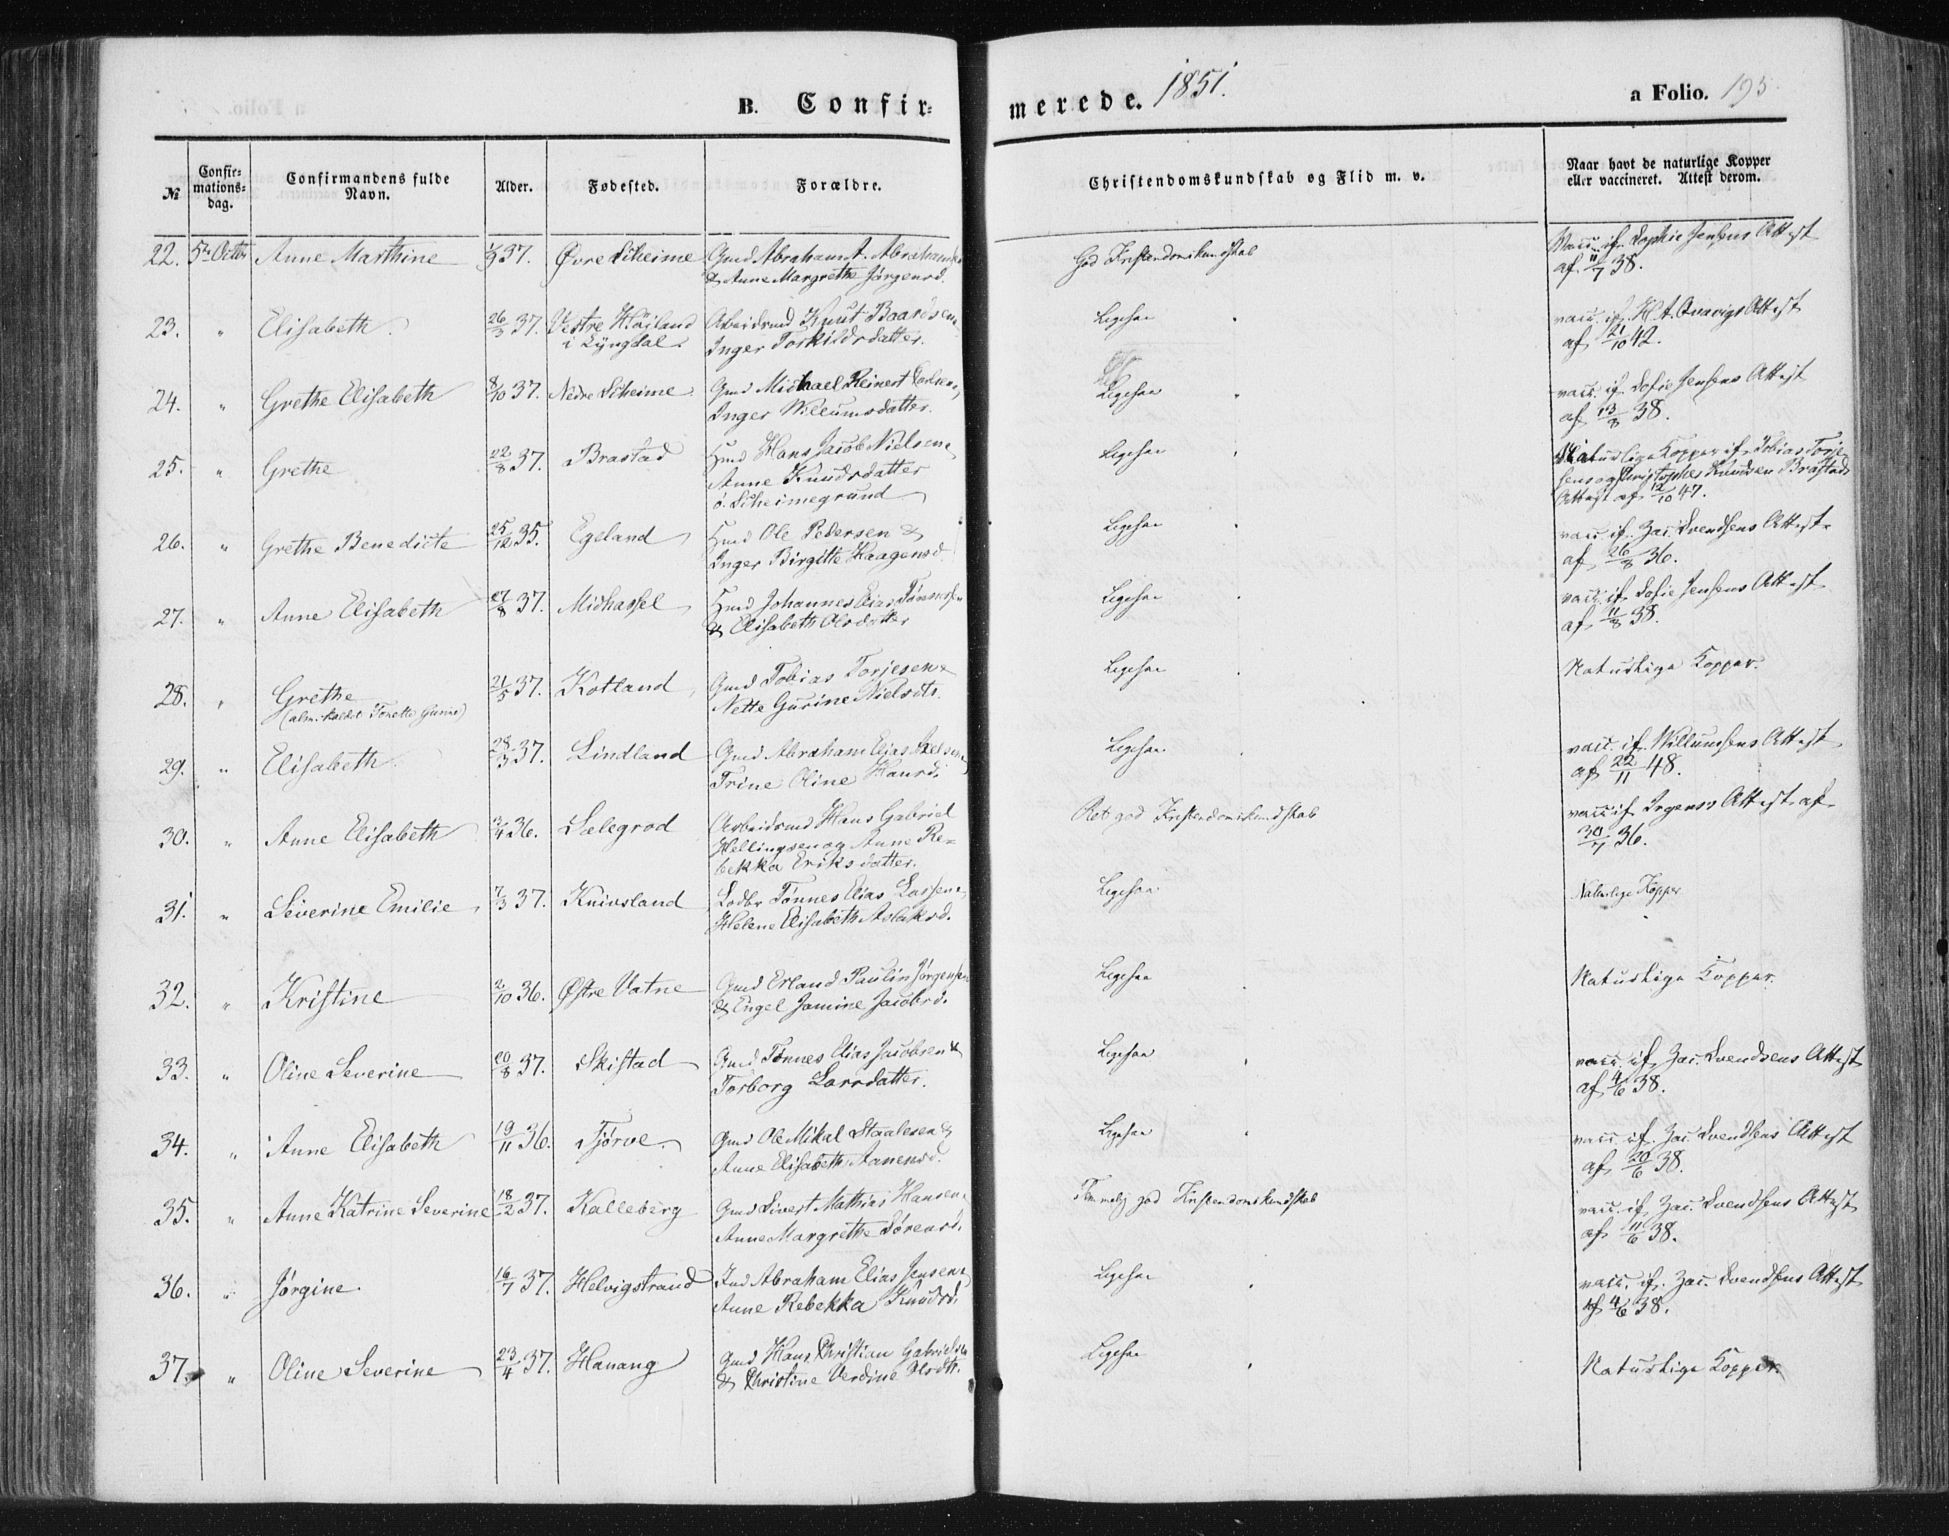 B. Confir=
merede. 1851.
a Folio. 195.
№
Confir=
mations=
dag.
Confirmandens fulde
Navn.
Alder.
Fødested.
Forældre.
Christendomskundskab og Flid m. v.
Naar havt de naturlige Kopper
eller vaccineret. Attest derom.
22. 5te Octbr Anne Marthine 37. Øvre Scheime Gmd Abraham A. Abrahams
& Anne Margrethe Jørgensd. God Kristendomskundskab Vacc. if. Sophie Jensens Attest
af 11/7 38.
23. " Elisabeth 26/3 37. Vestre Høiland
i Lyngdal Arbeidsmd Knut Baardsen
Inger Torkildsdatter. Ligesaa vacc. if. H. A. Qvavigs Attest
af 21/10 42.
24. " Grethe Elisabeth 8/10 37. Nedre Scheime Gmd Michael Reinert
Inger Willumsdatter. Ligesaa " vacc. if. Sofie Jensens Attest
af 13/8 38.
25. " Grethe 22/8 37. Brastad Hmd Hans Jacob Nielsen
Anne Knudsdatter
ø. Scheimegrund Ligesaa Naturlige Kopper if. Tobias Torje-
sens og Christopher Knudsen Brastads
Attest af 12/10 47.
26. " Grethe Benedicte 25/12 35. Egeland Hmd Ole Pedersen &
Inger Birgitte Haagensd. Ligesaa vacc. if. Zac. Svendsens Attest
af 26/8 36.
27. " Anne Elisabeth 27/8 37. Midhassel Hmd Johannes Elias Tønnes
& Elisabeth Olsdatter Ligesaa vacc. if. Sofie Jensens Attest
af 11/8 38.
28. " Grethe
(alm. kaldet Tonette Gurine) 21/5 37. Kotland Gmd Tobias Torjesen &
Nette Gurine Nielsdtr. Ligesaa Naturlige Kopper.
29. " Elisabeth 28/3 37. Lindland Gmd Abraham Elias Axelsen
Trine Oline Hansd. Ligesaa vacc. if. Willumsens Attest
af 22/11 48.
30. " Anne Elisabeth 36. Sælegrod Arbeidsmd Hans Gabriel
Hellingsen og Anne Re=
bekka Eriksdatter. Ret god Kristendomskundskab vacc if Irgens's Attest af
30/7 36.
31. " Severine Emilie 7/3 37. Knivsland Lodbr Tønnes Elias Lassen
Helene Elisabeth Aslaksd. Ligesaa Naturlige Kopper
32. " Kristine 2/10 36. Østre Vatne Gmd Erland Paulin Jørgensen
& Engel Jamine Jacobsd. Ligesaa Naturlige Kopper.
33. " Oline Severine 20/8 37. Skistad Gmd Tønnes Elias Jacobsen &
Torborg Larsdatter. Ligesaa vacc. if. Zac. Svendsens Attest
af 4/6 38.
34. " Anne Elisabeth 19/11 36. Tjørve Gmd Ole Mikal Staalesen &
Anne Elisabeth Aanensd. Ligesaa vacc. if. Zac. Svendsens Attest
af 20/6 38.
35. " Anne Katrine Severine 18/2 37. Kalleberg Gmd Sivert Mathias Hansen
Anne Margrethe Sørensd. Temmelig god Kristendomskundskab vacc. if. Zac. Svendsens Attest
af 11/6 38.
36. " Jørgine 16/7 37. Helvigstrand Ind Abraham Elias Jensen
Anne Rebekka Knudsd. Ligesaa vacc. if. Zac. Svendsens Attest
af 4/6 38.
37. " Oline Severine 23/4 37. Hanang Gmd Hans Christian Gabrielsen
& Christine Verdine Olsdtr. Ligesaa Naturlige Kopper.